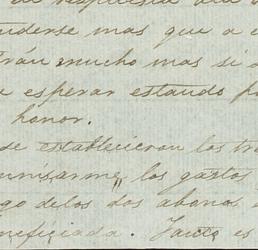 de respuesta
nderse mas que a
rán mucho mas si
esperar estando
honor.
se establecieron los
los gastos
go de los dos abonos
neficiada. Tanto es